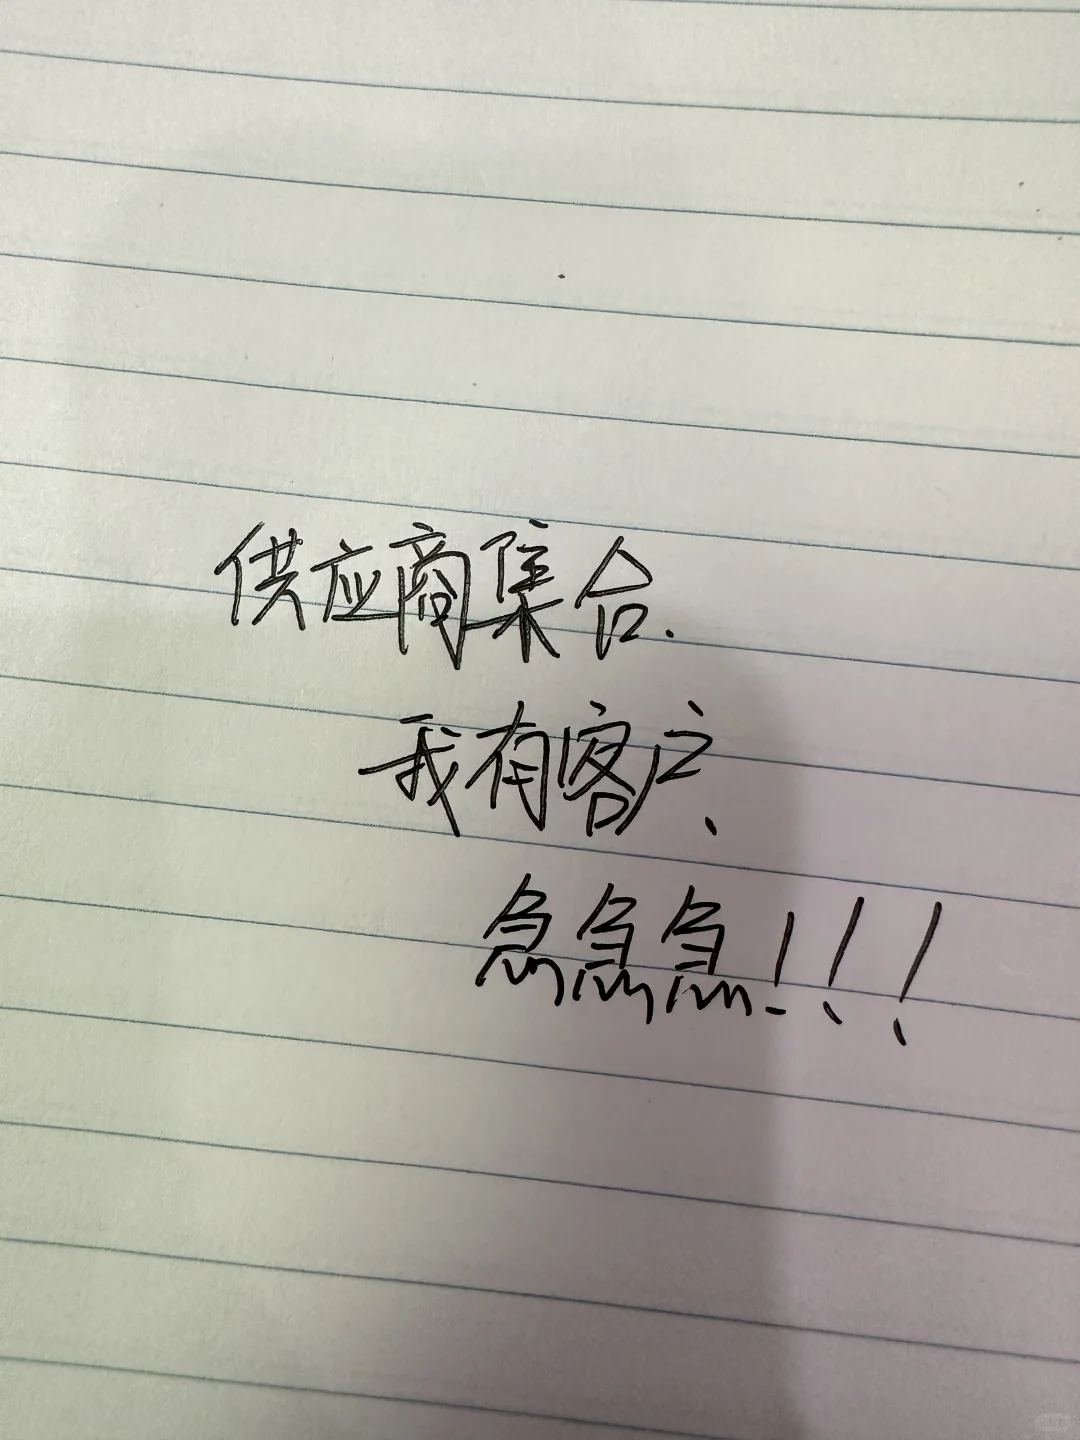 供应商集合.
我有客户、
急急急!!!